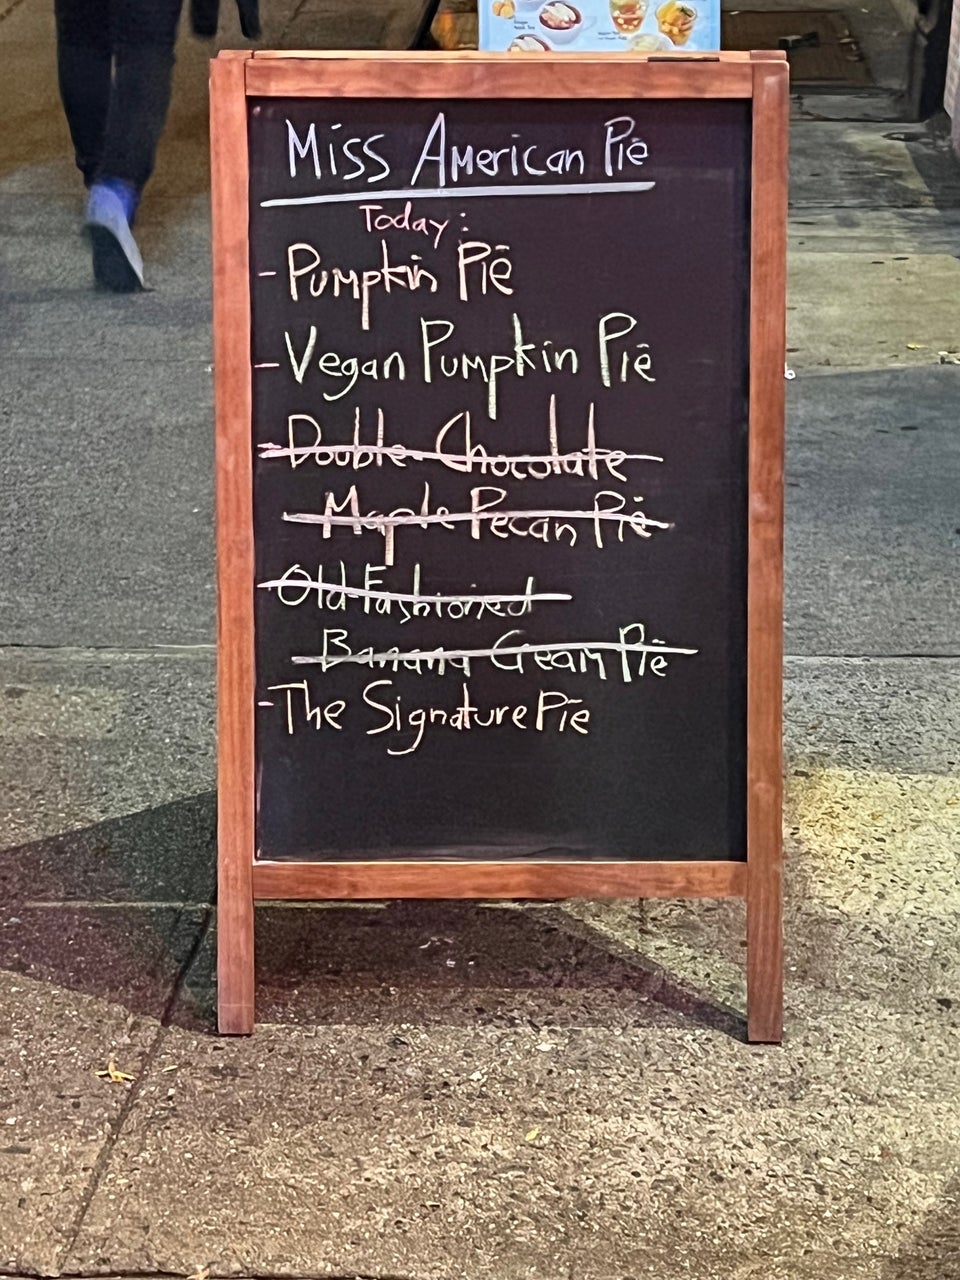 Miss American Pie
Today:
-Pumpkin Pie
-Vegan Pumpkin Pie
-Double Chocolate
Maple Pecan Pie
-Old Fashioned
Banana Cream Pie
-The Signature Pie